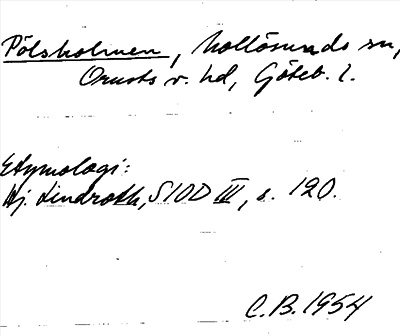 Pölsholmen, Mollösunds sn,
Orusts v. hd, Göteb. l.
Etymologi:
Hj. Lindroth, SIOD III, s. 120.
C.B. 1954